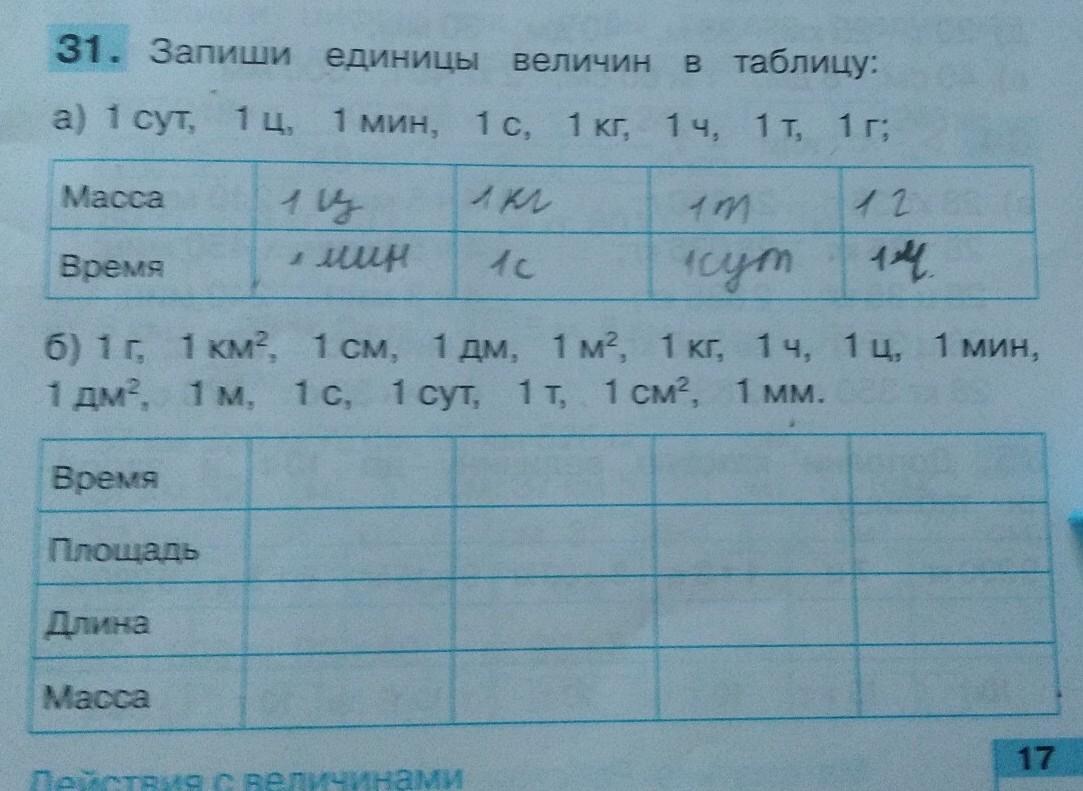 31. Запиши единицы величин в таблицу:
а) 1 сут, 1 ц, 1 мин, 1 с, 1 кг, 1 ч, 1 т, 1 г;
Масса 1 ц 1 кг 1 т 1 г
Время 1 мин 1 с 1 сут 1 ч.
б) 1 г, 1 км², 1 см, 1 дм, 1 м², 1 кг, 1 ч, 1 ц, 1 мин,
1 дм², 1 м, 1 с, 1 сут, 1 т, 1 см², 1 мм.
Время
Площадь
Длина
Масса
17
Действия с величинами